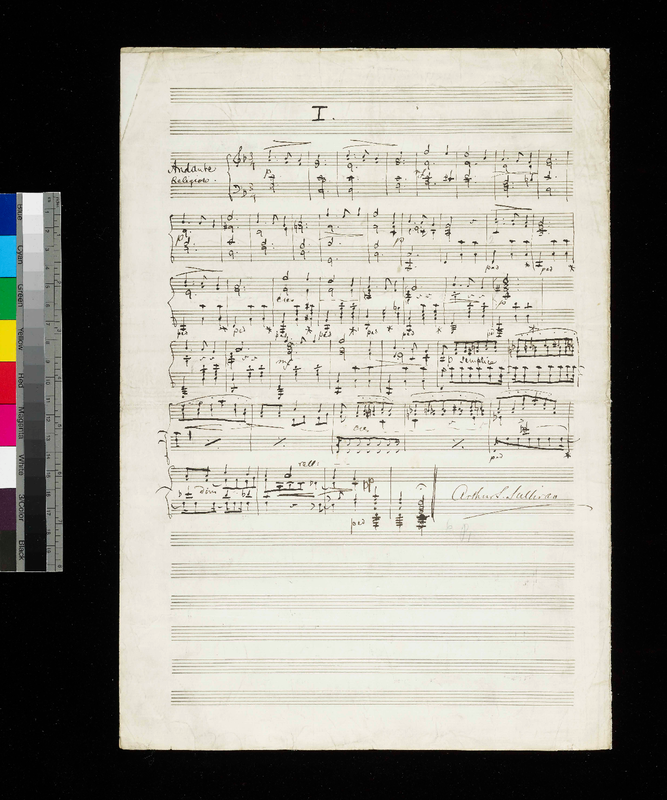 I.
Andante
Religioso.
p
p
pp
ped * ped *
cres.
ped * ped * ped * ped * ped
mf
p semplice
cres.
ped *
rall:
dim
pp
ped
Arthur S. Sullivan
Blue
Cyan
Green
Yellow
Red
Magenta
White
3/Color
Black